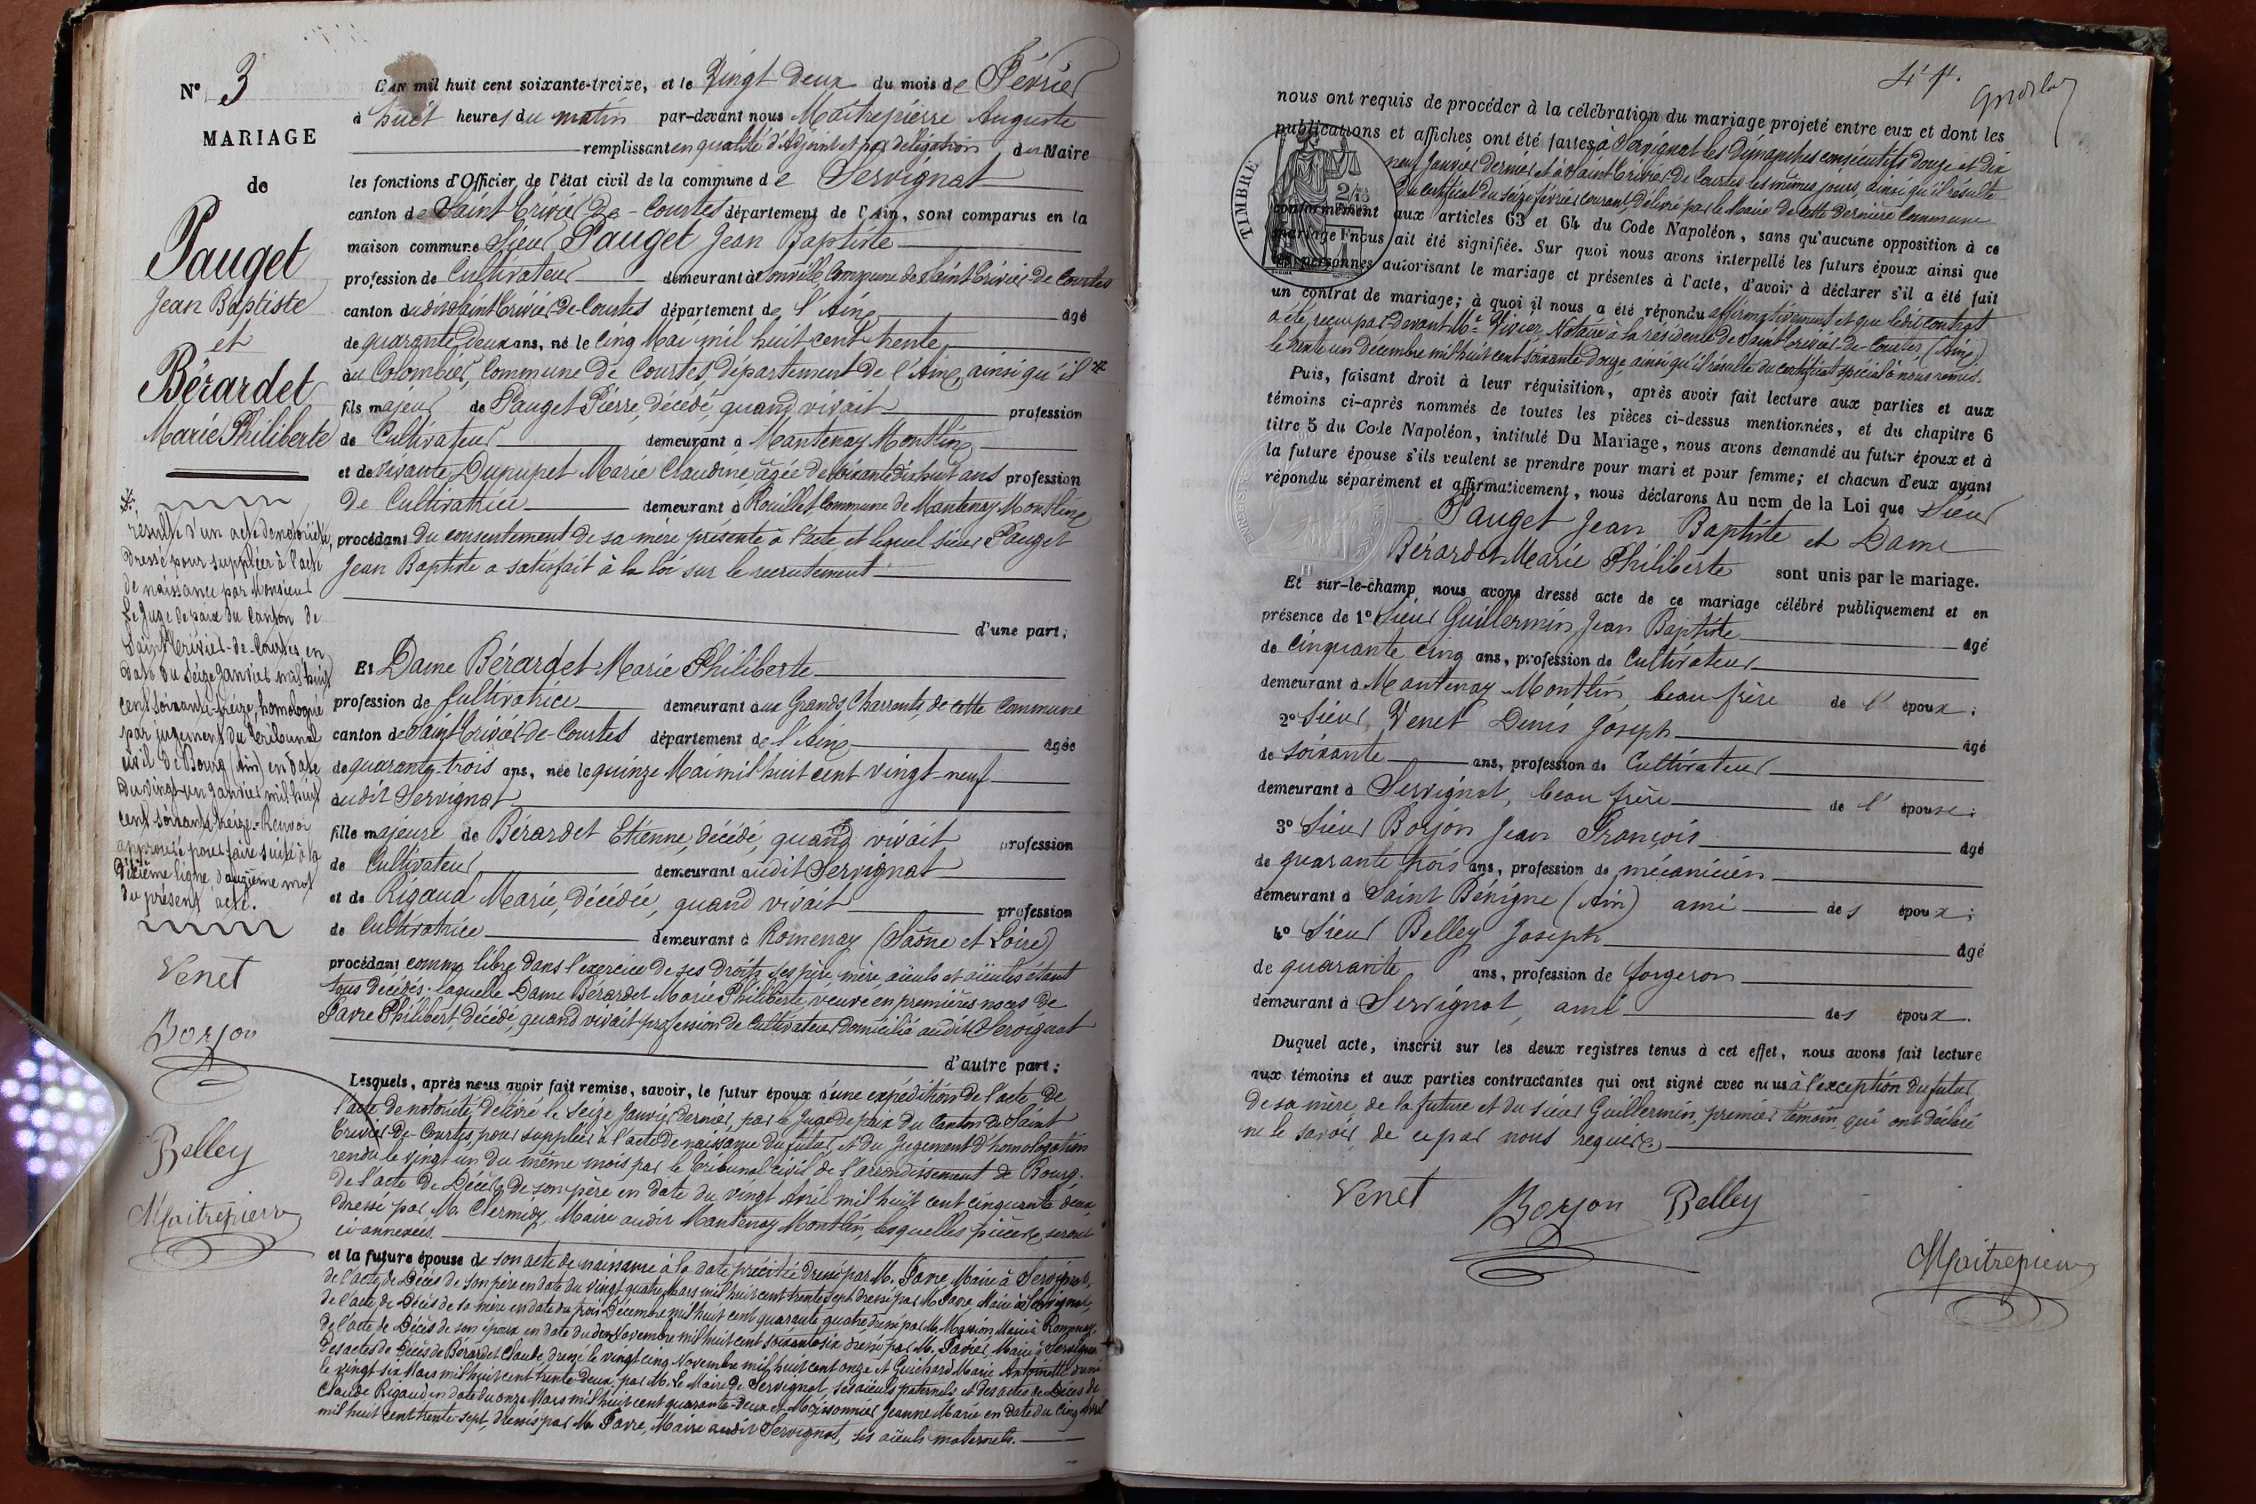 N° 3
MARIAGE
de
Pauget
Jean Baptiste
et
Bérardet
Marie Philiberte
résulte d'un acte de notoriété,
dressé pour suppléer à l'acte
de naissance par Monsieur
le Juge de paix du Canton de
Saint Trivier-de-Courtes en
date du seize Janvier mil huit
cent soixante-treize, homologué
par jugement du Tribunal
civil de Bourg (Ain) en date
du vingt-un Janvier mil huit
cent soixante treize. Renvoi
approuvé pour faire suite à la
dixième ligne, douzième mot
du présent acte.
Venet
Borjon
Belley
Maitrepierre
L'AN mil huit cent soixante-treize, et le Vingt deux du mois de Février
à huit heures du matin par-devant nous Maitrepierre Auguste
remplissant en qualité d'Adjoint et par délégation du Maire
les fonctions d'Officier de l'état civil de la commune de Servignat
canton de Saint Trivier-De-Courtes département de l'Ain, sont comparus en la
maison commune Sieur Pauget Jean Baptiste
profession de Cultivateur demeurant à Commune de Saint Trivier-De-Courtes
canton dudit Saint Trivier-De-Courtes département de l'Ain âgé
de quarante deux ans, né le cinq Mai mil huit cent trente,
au Colombier, Commune de Courtes, Département de l'Ain, ainsi qu'il
fils majeur de Pauget Pierre, décédé, quand vivait profession
de Cultivateur demeurant à Mantenay Montlin
et de vivante Dupupet Marie Claudine âgée de soixante dix huit ans profession
de Cultivatrice demeurant à Rouillet Commune de Mantenay Montlin
procédant du consentement de sa mère présente à l'acte, et lequel sieur Pauget
Jean Baptiste a satisfait à la loi sur le recrutement
d'une part;
Et Dame Bérardet Marie Philiberte
profession de Cultivatrice demeurant aux Grands Charronts, de cette Commune
canton de Saint Trivier-De-Courtes département de l'Ain âgée
de quarante trois ans, née le quinze Mai mil huit cent vingt-neuf
audit Servignat
fille majeure de Bérardet Etienne, décédé, quand vivait profession
de Cultivateur demeurant audit Servignat
et de Rigaud Marie, décédée, quand vivait profession
de Cultivatrice demeurant à Romenay (Saône et Loire)
procédant comme libre dans l'exercice de ses droits, ses père, mère, aïeuls et aïeules étant
tous décédés; laquelle Dame Bérardet Marie Philiberte veuve en premières noces de
Favre Philibert, décédé, quand vivait, profession de Cultivateur domicilié audit Servignat
d'autre part;
Lesquels, après nous avoir fait remise, savoir, le futur époux d'une expédition de l'acte de
l'acte de notoriété, délivré le seize Janvier dernier, par le Juge de paix du Canton de Saint
Trivier-De-Courtes, pour suppléer à l'acte de naissance du futur, et du Jugement d'homologation
rendu le vingt un du même mois par le Tribunal civil de l'arrondissement de Bourg.
De l'acte de Décès de son père en date du vingt Avril mil huit cent cinquante deux
dressé par M. Clermidy, Maire audit Mantenay Montlin, lesquelles pièces seront
ci-annexées
et la future épouse de son acte de naissance à la date précitée dressé par M. Favre, Maire à Servignat,
de l'acte de Décès de son père en date du vingt quatre Mars mil huit cent trente sept dressé par M. Favre, Maire à Servignat,
de l'acte de Décès de sa mère en date du trois Décembre mil huit cent quarante quatre dressé par M. Maire à Romenay,
de l'acte de Décès de son époux en date du deux Novembre mil huit cent soixante six dressé par M. Favier, Maire à Servignat
Des actes de Décès de Bérardet Claude, dressé le vingt cinq Novembre mil huit cent onze et Guichard Marie Antoinette
le vingt six Mars mil huit cent trente deux, par M. Le Maire de Servignat, ses aïeuls paternels, et des actes de Décès de
Claude Rigaud en date du onze Mars mil huit cent quarante-deux et Moissonnier Jeanne Marie en date du cinq Avril
mil huit cent trente-sept, dressés par M. Favre, Maire audit Servignat, ses aïeuls maternels.
4e f.
nous ont requis de procéder à la célébration du mariage projeté entre eux et dont les
publications et affiches ont été faites à Servignat les Dimanches consécutifs douze et dix
neuf Janvier dernier et à Saint Trivier De Courtes les mêmes jours, ainsi qu'il résulte
du certificat du seize février courant, délivré par le Maire de cette dernière Commune
conformément aux articles 63 et 64 du Code Napoléon, sans qu'aucune opposition à ce
mariage nous ait été signifiée. Sur quoi nous avons interpellé les futurs époux ainsi que
les personnes autorisant le mariage et présentes à l'acte, d'avoir à déclarer s'il a été fait
un contrat de mariage; à quoi il nous a été répondu affirmativement et que ledit contrat
a été reçu par devant Me Vivier, Notaire à la résidence de Saint Trivier-De-Courtes (Ain)
le trente un décembre mil huit cent soixante douze, ainsi qu'il résulte du certificat spécial à nous remis.
TIMBRE
Puis, faisant droit à leur réquisition, après avoir fait lecture aux parties et aux
témoins ci-après nommés de toutes les pièces ci-dessus mentionnées, et du chapitre 6
titre 5 du Code Napoléon, intitulé Du Mariage, nous avons demandé au futur époux et à
la future épouse s'ils veulent se prendre pour mari et pour femme; et chacun d'eux ayant
répondu séparément et affirmativement, nous déclarons Au nom de la Loi que Sieur
Pauget Jean Baptiste et Dame
Bérardet Marie Philiberte sont unis par le mariage.
Et sur-le-champ nous avons dressé acte de ce mariage célébré publiquement et en
présence de 1° Sieur Guillermin Jean Baptiste âgé
de Cinquante cinq ans, profession de Cultivateur
demeurant à Mantenay Montlin, beau frère de l'époux;
2° Sieur Venet Denis Joseph âgé
de soixante ans, profession de Cultivateur
demeurant à Servignat, beau frère de l'épouse;
3° Sieur Borjon Jean François âgé
de quarante trois ans, profession de mécanicien
demeurant à Saint Bénigne (Ain) ami des époux;
4° Sieur Belley Joseph âgé
de quarante ans, profession de forgeron
demeurant à Servignat, ami des époux.
Duquel acte, inscrit sur les deux registres tenus à cet effet, nous avons fait lecture
aux témoins et aux parties contractantes qui ont signé avec nous à l'exception du futur,
de sa mère, de la future et du sieur Guillermin, premier témoin, qui ont déclaré
ne le savoir de ce par nous requis
Venet Borjon Belley
Maitrepierre